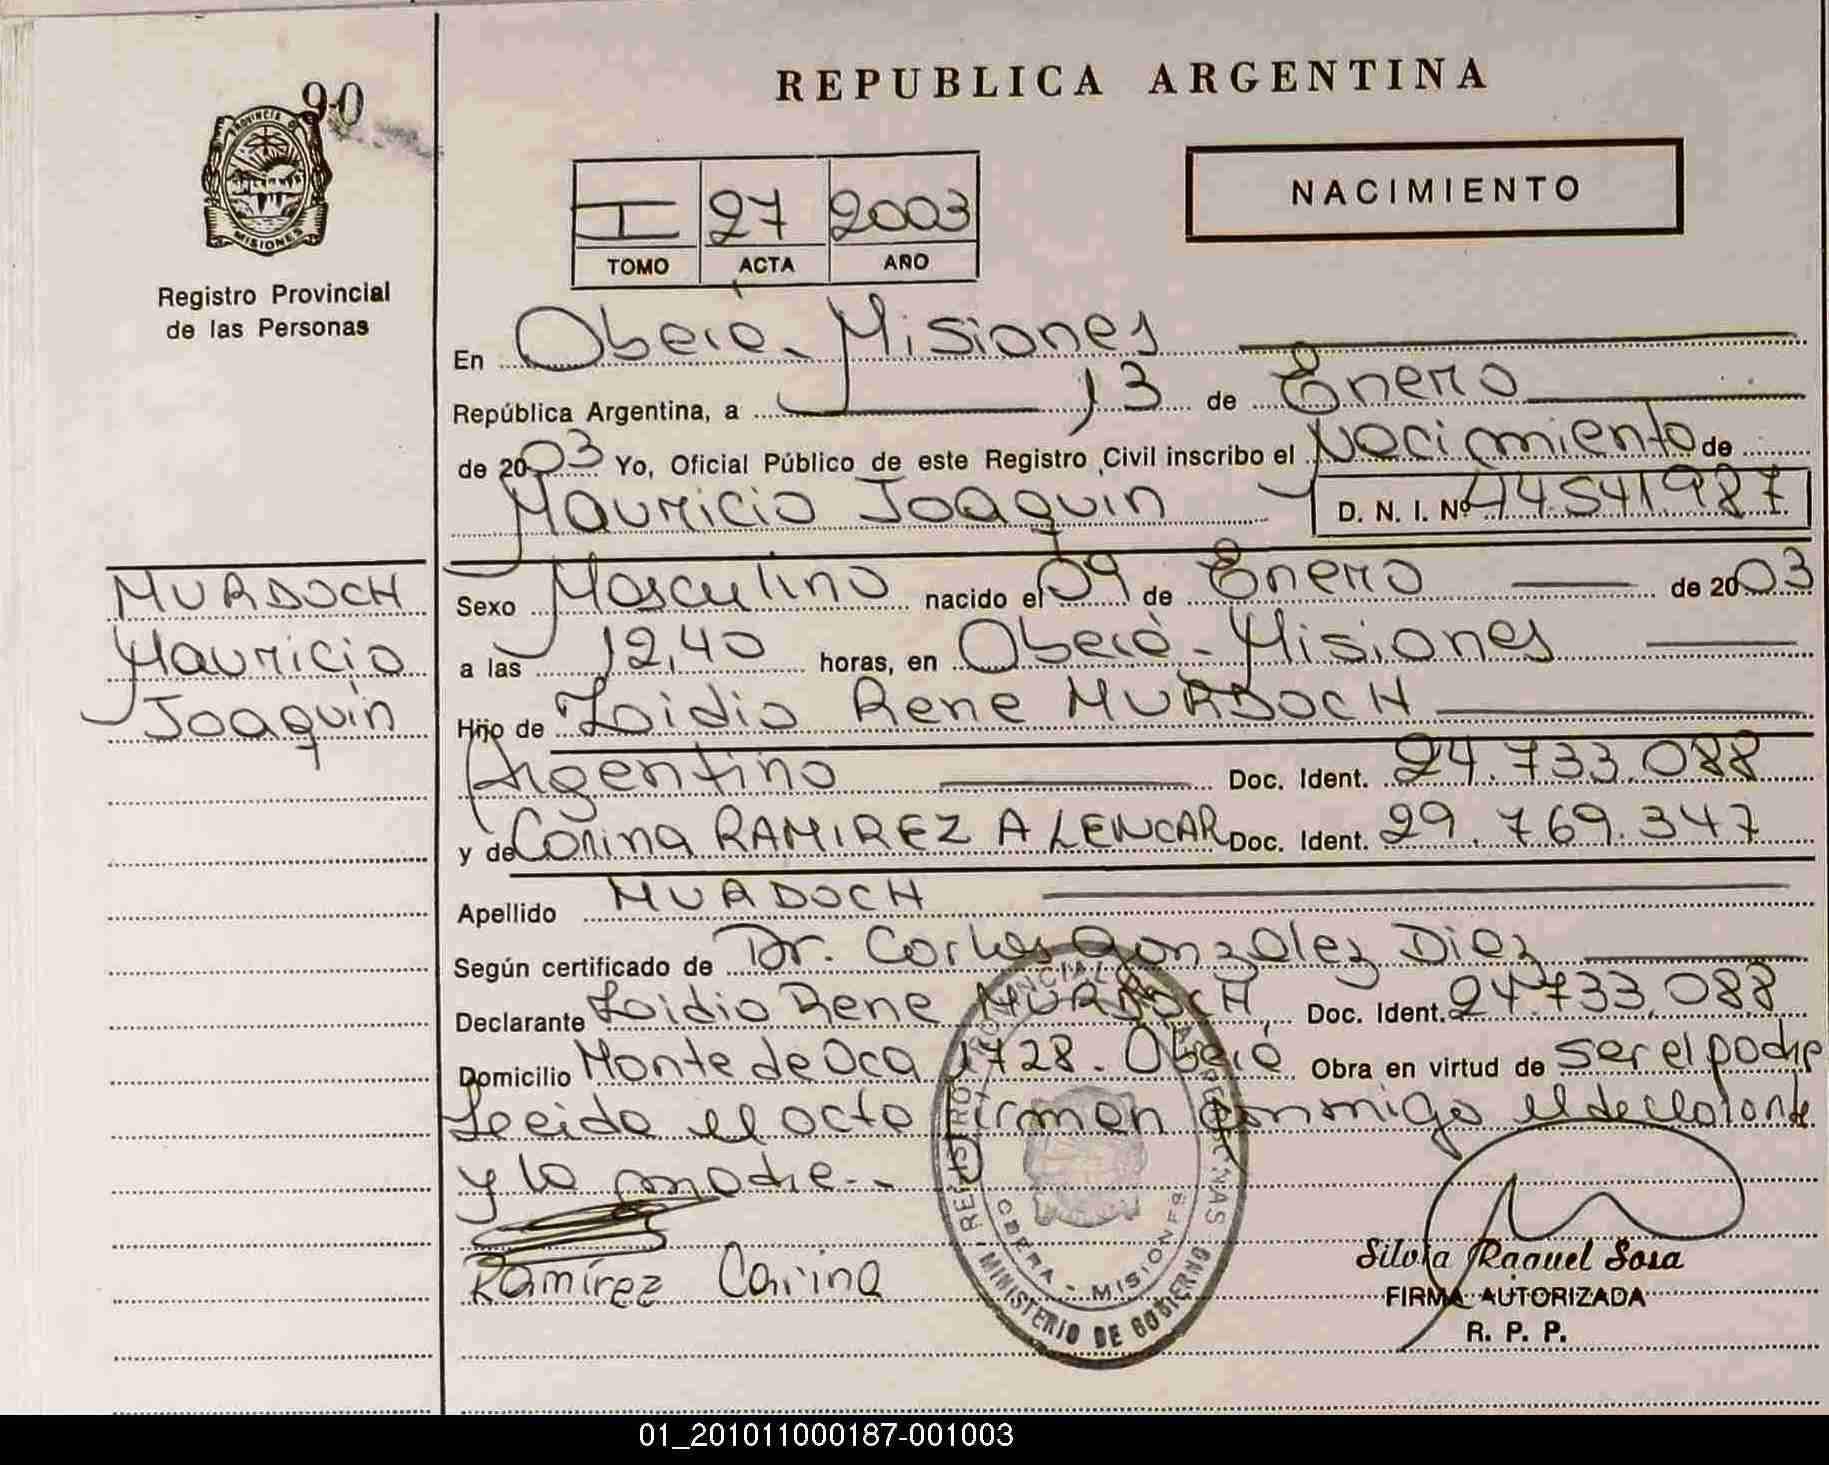 REPUBLICA ARGENTINA
90
PROVINCIA DE
MISIONES
Registro Provincial
de las Personas
I 27 2003
TOMO ACTA AÑO
NACIMIENTO
En Oberá - Misiones
República Argentina, a 13 de Enero
de 2003 Yo, Oficial Público de este Registro Civil inscribo el Nacimiento de
Mauricio Joaquin D. N. I. Nº 44.541.987
MURDOCH
Mauricio
Joaquin
Sexo Masculino nacido el 09 de Enero de 2003
a las 12,40 horas, en Oberá - Misiones
Hijo de Loidio Rene MURDOCH
Argentino Doc. Ident. 24.733.088
y de Corina RAMIREZ ALENCAR Doc. Ident. 29.769.347
Apellido MURDOCH
Según certificado de Dr. Carlos Gonzalez Diez
Declarante Loidio Rene MURDOCH, Doc. Ident. 24.733.088
Domicilio Monte de Oca 1728. Oberá Obra en virtud de ser el padre
Leida el acta firman conmigo el declarante
y la madre.-
Ramírez Carina
REGISTRO PROVINCIAL DE LAS PERSONAS
OBERA - MISIONES
MINISTERIO DE GOBIERNO
Silvia Raquel Sosa
FIRMA AUTORIZADA
R. P. P.
01_201011000187-001003